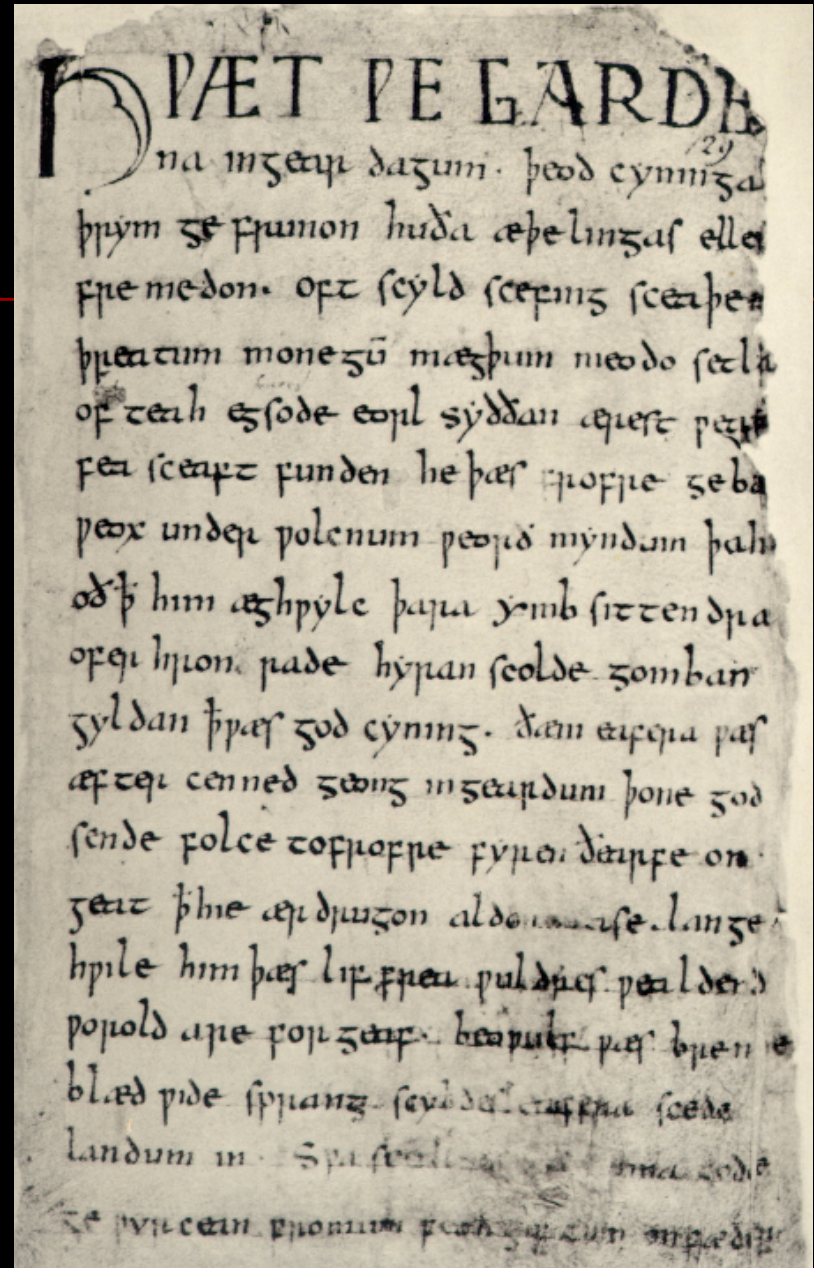 HǷÆT ǷE GARDE
na ingear dagum. þeod cyninga
129
þrym ge frunon huða æþelingas elle
fremedon. oft scyld scefing sceaþe
þreatum monegū mægþum meodo setla
of teah egsode eorl syððan ærest ƿear
fea sceaft funden he þæs frofre geba
ƿeox under ƿolcnum ƿeorð myndum þah
oð ꝥ him æghƿylc þara ymb sittendra
ofer hron rade hyran scolde gomban
gyldan ꝥ ƿæs god cyning. ðæm eafera ƿæs
æfter cenned geong ingeardum þone god
sende folce tofrofre fyren ðearfe on
geat ꝥ hie ær drugon aldo ase. lange
hƿile him þæs lif frea ƿuldres ƿealdend
ƿorold are for geaf. beoƿulf ƿæs breme
blæd ƿide sprang scyldes eafera scede
landum in. Sƿa sceal ma gode
ge ƿyrcean fromum feoh giftum on fæder